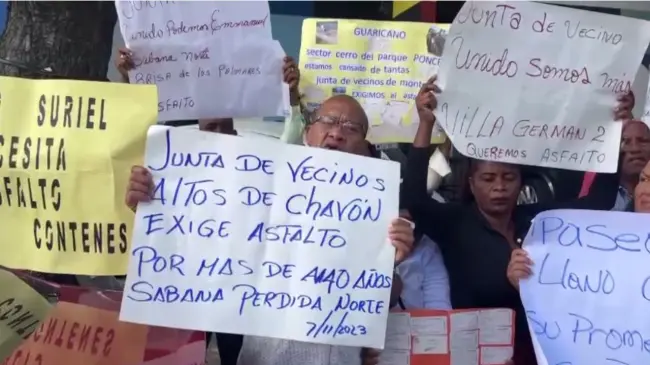 Junta de Vecino
unido Podemos Emmanuel
Sabana Norte
Brisa de los Palmares
Asfalto
GUARICANO
sector cerro del parque PONCE
estamos cansado de tantas
junta de vecinos de
EXIGIMOS el
Junta de Vecino
Unido Somos más
Villa German 2
Queremos Asfalto
SURIEL
CESITA
SFALTO
CONTENES
Junta de Vecinos
Altos de Chavón
Exige Asfalto
Por mas de
años
Sabana Perdida Norte
7/11/2023
CONTENES
Paseo
Llano
su